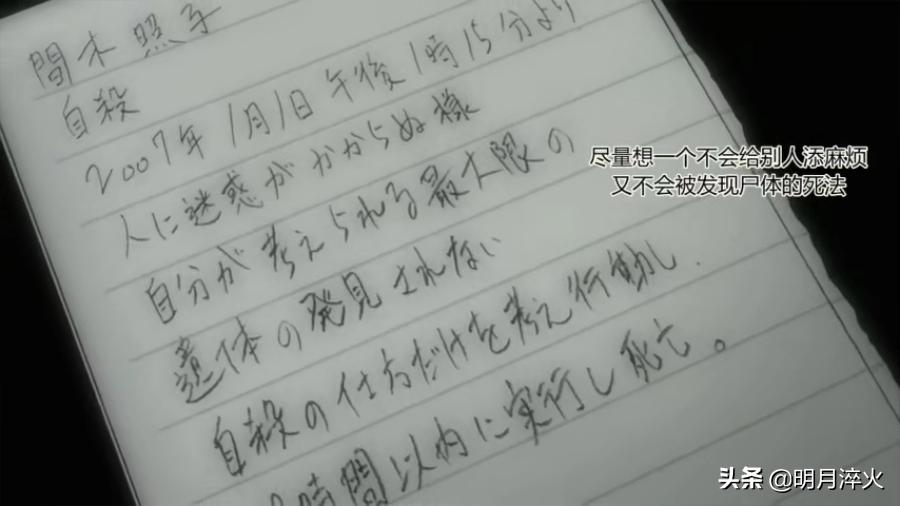 間木照子
自殺
2007年1月1日午後1時15分より
人に迷惑がかからぬ様
自分が考えられる最大限の
遺体の発見されない
自殺の仕方だけを考え行動し
時間以内に実行し死亡。
尽量想一个不会给别人添麻烦
又不会被发现尸体的死法
头条 @明月淬火